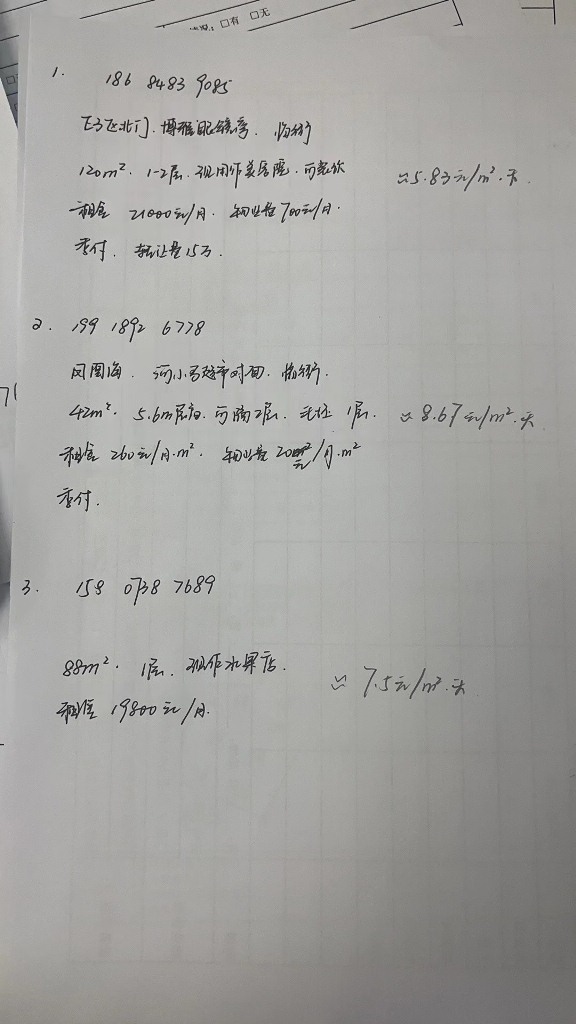 □有 □无
1. 186 8483 9085
北门. 博雅眼镜旁. 临街
120m². 1-2层. 现用作美容院. 可餐饮 ≈5.83元/m².天.
租金 21000元/月. 物业费700元/月.
季付. 转让费15万.
2. 199 1892 6778
凤图海. 河小马超市对面. 临街.
42m². 5.6m层高. 可隔2层. 毛坯 1层. ≈8.67元/m².天
租金 260元/月.m². 物业费 20元/月.m²
季付.
3. 158 0738 7689
88m². 1层. 现作水果店. ≈ 7.5元/m².天
租金 19800元/月.